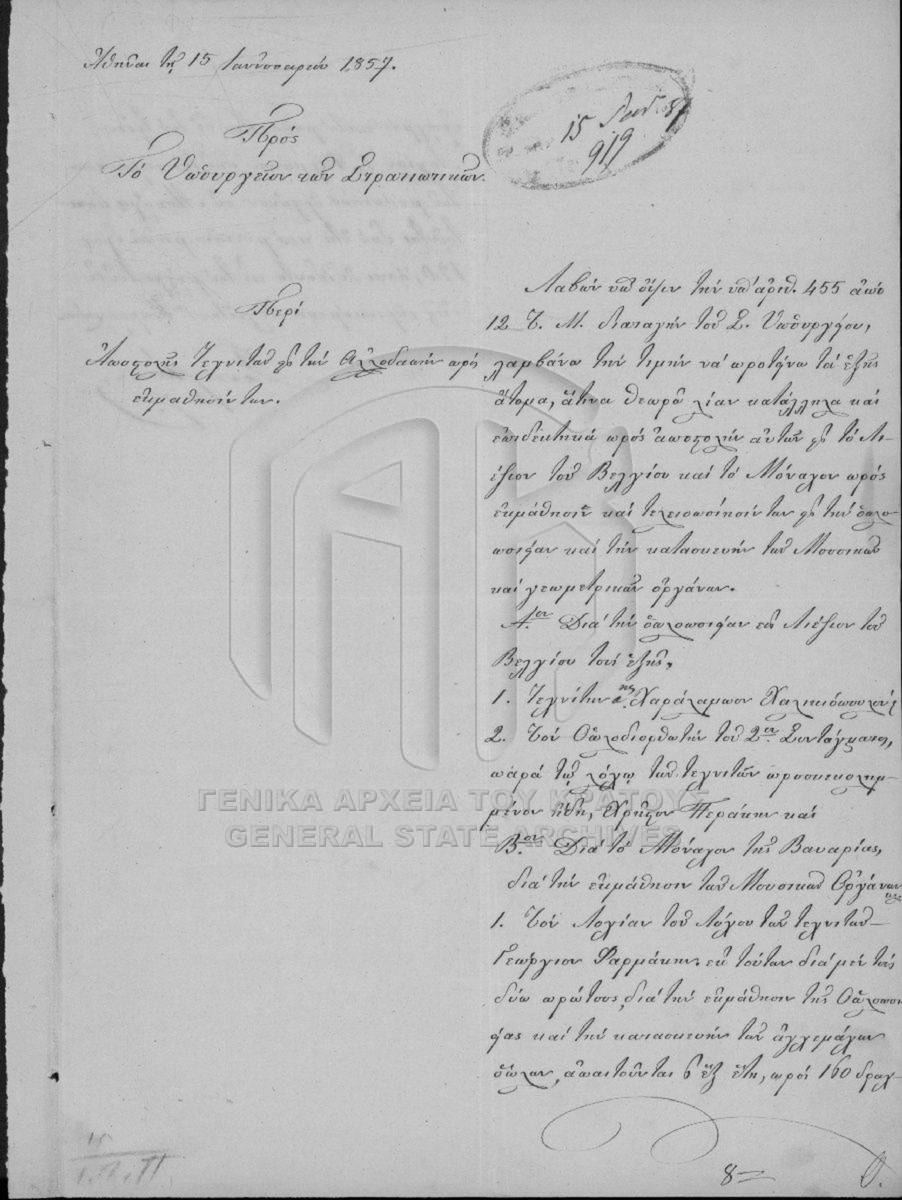 Ἀθῆναι τῇ 15 Ἰανουαρίου 1857.
15 Ἰαν. 57
919
Πρὸς
Τὸ Ὑπουργεῖον τῶν Στρατιωτικῶν.
Περὶ
Ἀποστολῆς Τεχνιτῶν εἰς τὴν Ἀλλοδαπὴν πρὸς
ἐκμάθησίν των.
Λαβὼν ὑπ' ὄψιν τὴν ὑπ' ἀριθ. 455 ἀπὸ
12 τ. Μ. διαταγὴν τοῦ Σ. Ὑπουργείου,
λαμβάνω τὴν τιμὴν νὰ προτείνω τὰ ἑξῆς
ἄτομα, ἅτινα θεωρῶ λίαν κατάλληλα καὶ
ἐπιδεκτικὰ πρὸς ἀποστολὴν αὐτῶν εἰς τὸ Λι-
έγιον τοῦ Βελγίου καὶ τὸ Μόναχον πρὸς
ἐκμάθησιν καὶ τελειοποίησίν των εἰς τὴν ὁπλο-
ποιΐαν καὶ τὴν κατασκευὴν τῶν Μουσικῶν
καὶ γεωμετρικῶν ὀργάνων.
Αον Διὰ τὴν ὁπλοποιΐαν εἰς Λιέγιον τοῦ
Βελγίου τοὺς ἑξῆς,
1. Τεχνίτην Χαράλαμπον
2. Τὸν Ὁπλοδιορθωτὴν τοῦ 2ου Συντάγματος,
παρὰ τῷ λόχῳ τῶν τεχνιτῶν προσκεκολλη-
μένον ἤδη, Χρῆστον Περάκην καὶ
Βον Διὰ τὸ Μόναχον τῆς Βαυαρίας,
διὰ τὴν ἐκμάθησιν τῶν Μουσικῶν Ὀργάνων
1. Τὸν Λοχίαν τοῦ Λόχου τῶν τεχνιτῶν
Γεώργιον Φαρμάκην. ἐκ τούτων διὰ μὲν τοὺς
δύω πρώτους, διὰ τὴν ἐκμάθησιν τῆς Ὁπλοποι
ΐας καὶ τὴν κατασκευὴν τῶν ἀγχεμάχων
ὅπλων, ἀπαιτοῦνται 6 ἓξ ἔτη, πρὸς 160 δραχ-
ΓΕΝΙΚΑ ΑΡΧΕΙΑ ΤΟΥ ΚΡΑΤΟΥΣ
GENERAL STATE ARCHIVES